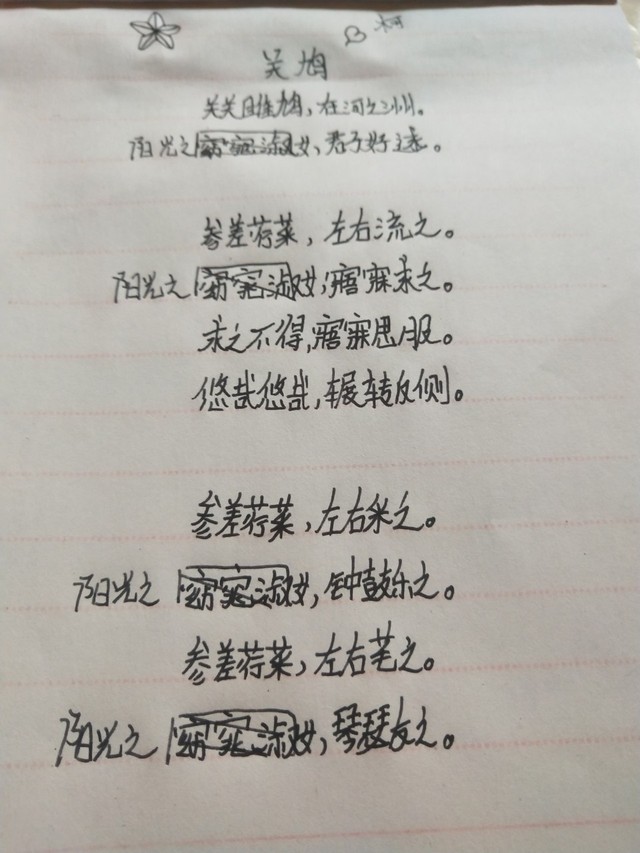 柯
关鸠
关关雎鸠，在河之洲。
阳光之窈窕淑女，君子好逑。
参差荇菜，左右流之。
阳光之窈窕淑女，寤寐求之。
求之不得，寤寐思服。
悠哉悠哉，辗转反侧。
参差荇菜，左右采之。
阳光之窈窕淑女，钟鼓乐之。
参差荇菜，左右芼之。
阳光之窈窕淑女，琴瑟友之。